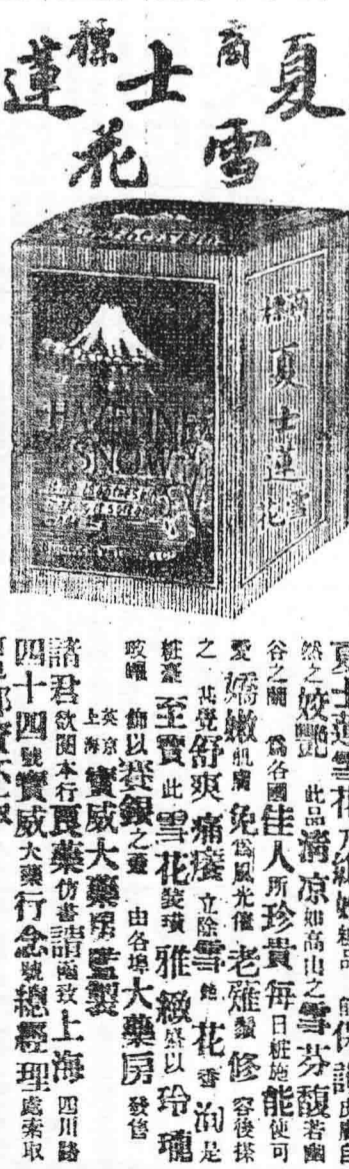 商標
夏士蓮
雪花
HAZELINE
SNOW
商標
夏士蓮
雪花
夏士蓮雪花乃絕妙粧品 能保護皮膚自
然之姣艷 此品清凉如高山之雪芬馥若幽
谷之蘭 爲各國佳人所珍貴每日粧施能使可
愛嬌嫩肌膚免爲風光催老薙鬚修容後搽
之 其覺舒爽痛癢立除雪艷花香洵是
粧臺至寶此雪花裝璜雅緻盛以玲瓏
玻瓈 飾以賽銀之蓋 由各埠大藥房發售
英京
上海 寶威大藥房監製
諸君欲閱本行良藥仿書請函致上海四川路
四十四號寶威大藥行念號總經理處索取